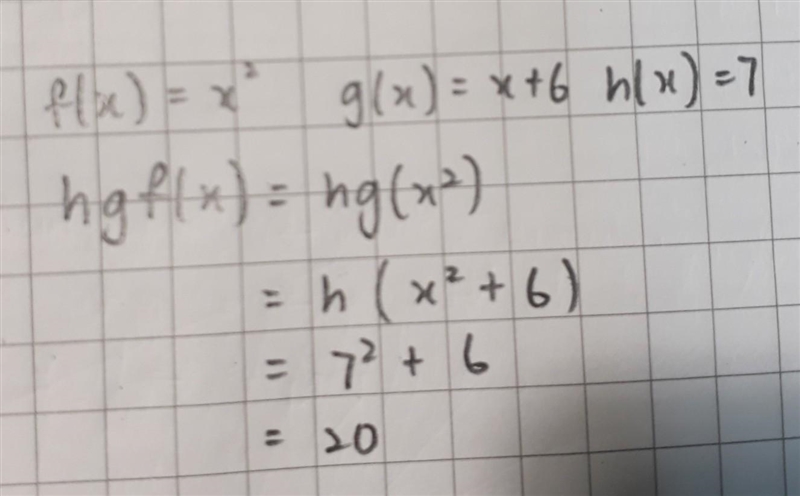 f(x) = x² g(x) = x+6 h(x) = 7
hgf(x) = hg(x²)
= h (x² + 6)
= 7² + 6
= 20